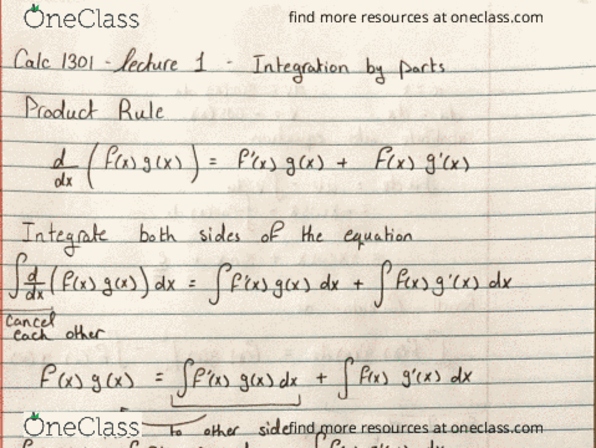 OneClass find more resources at oneclass.com
Calc 1301 - lecture 1 - Integration by parts
Product Rule
d/dx (f(x) g(x)) = f'(x) g(x) + f(x) g'(x)
Integrate both sides of the equation
∫ d/dx (f(x) g(x)) dx = ∫ f'(x) g(x) dx + ∫ f(x) g'(x) dx
cancel
each other
f(x) g(x) = ∫ f'(x) g(x) dx + ∫ f(x) g'(x) dx
OneClass to other side find more resources at oneclass.com